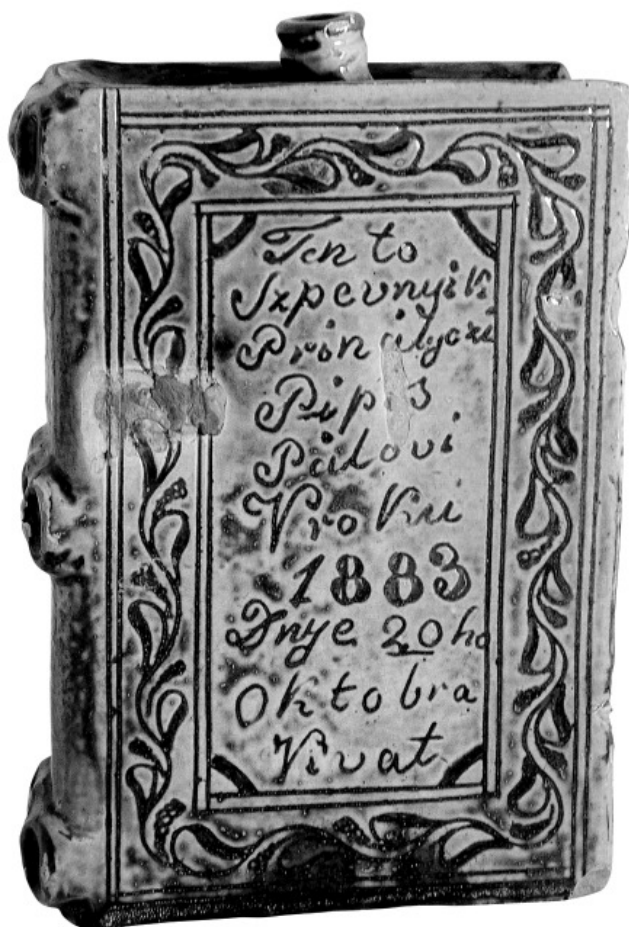 Ten to
Szpevnyik
Prinályozi
Pipis
Pálovi
Vroku
1883
Dnye 20 ho
Oktobra
Vivat